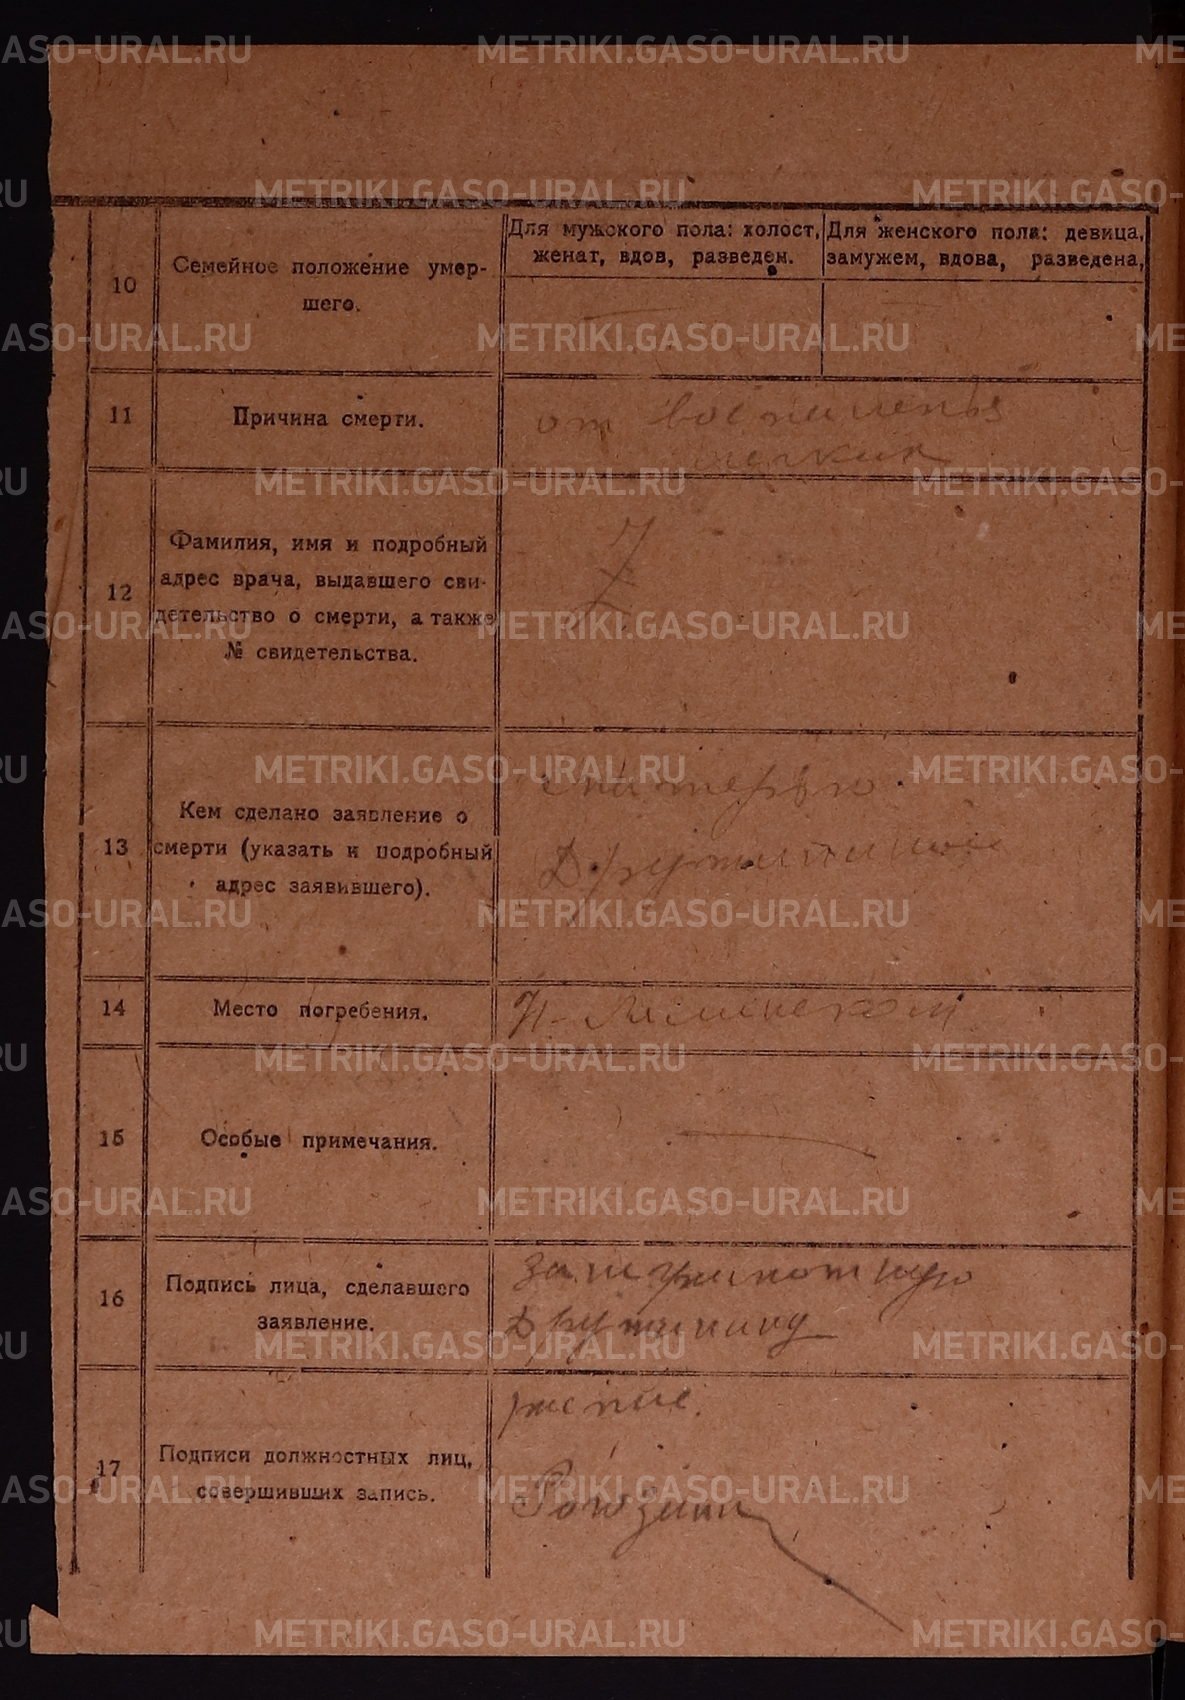 METRIKI.GASO-URAL.RU
10
Семейное положение умер-
шего.
Для мужского пола: холост,
женат, вдов, разведен.
Для женского пола: девица,
замужем, вдова, разведена,
11
Причина смерти.
от воспаленья
легких
12
Фамилия, имя и подробный
адрес врача, выдавшего сви-
детельство о смерти, а также
№ свидетельства.
13
Кем сделано заявление о
смерти (указать и подробный
адрес заявившего).
матерью
14
Место погребения.
15
Особые примечания.
16
Подпись лица, сделавшего
заявление.
за неграмотную
Дружинину
17
Подписи должностных лиц,
совершивших запись.